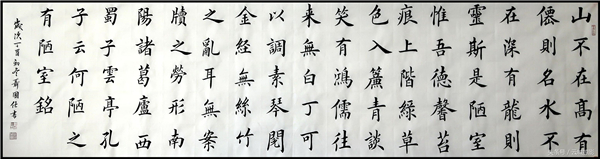 山不在高有
僊則名水不
在深有龍則
靈斯是陋室
惟吾德馨苔
痕上階綠草
色入簾青談
笑有鴻儒往
来無白丁可
以調素琴閱
金經無絲竹
之亂耳無案
牘之勞形南
陽諸葛廬西
蜀子雲亭孔
子云何陋之
有陋室銘
歲次丁酉初冬國仕書